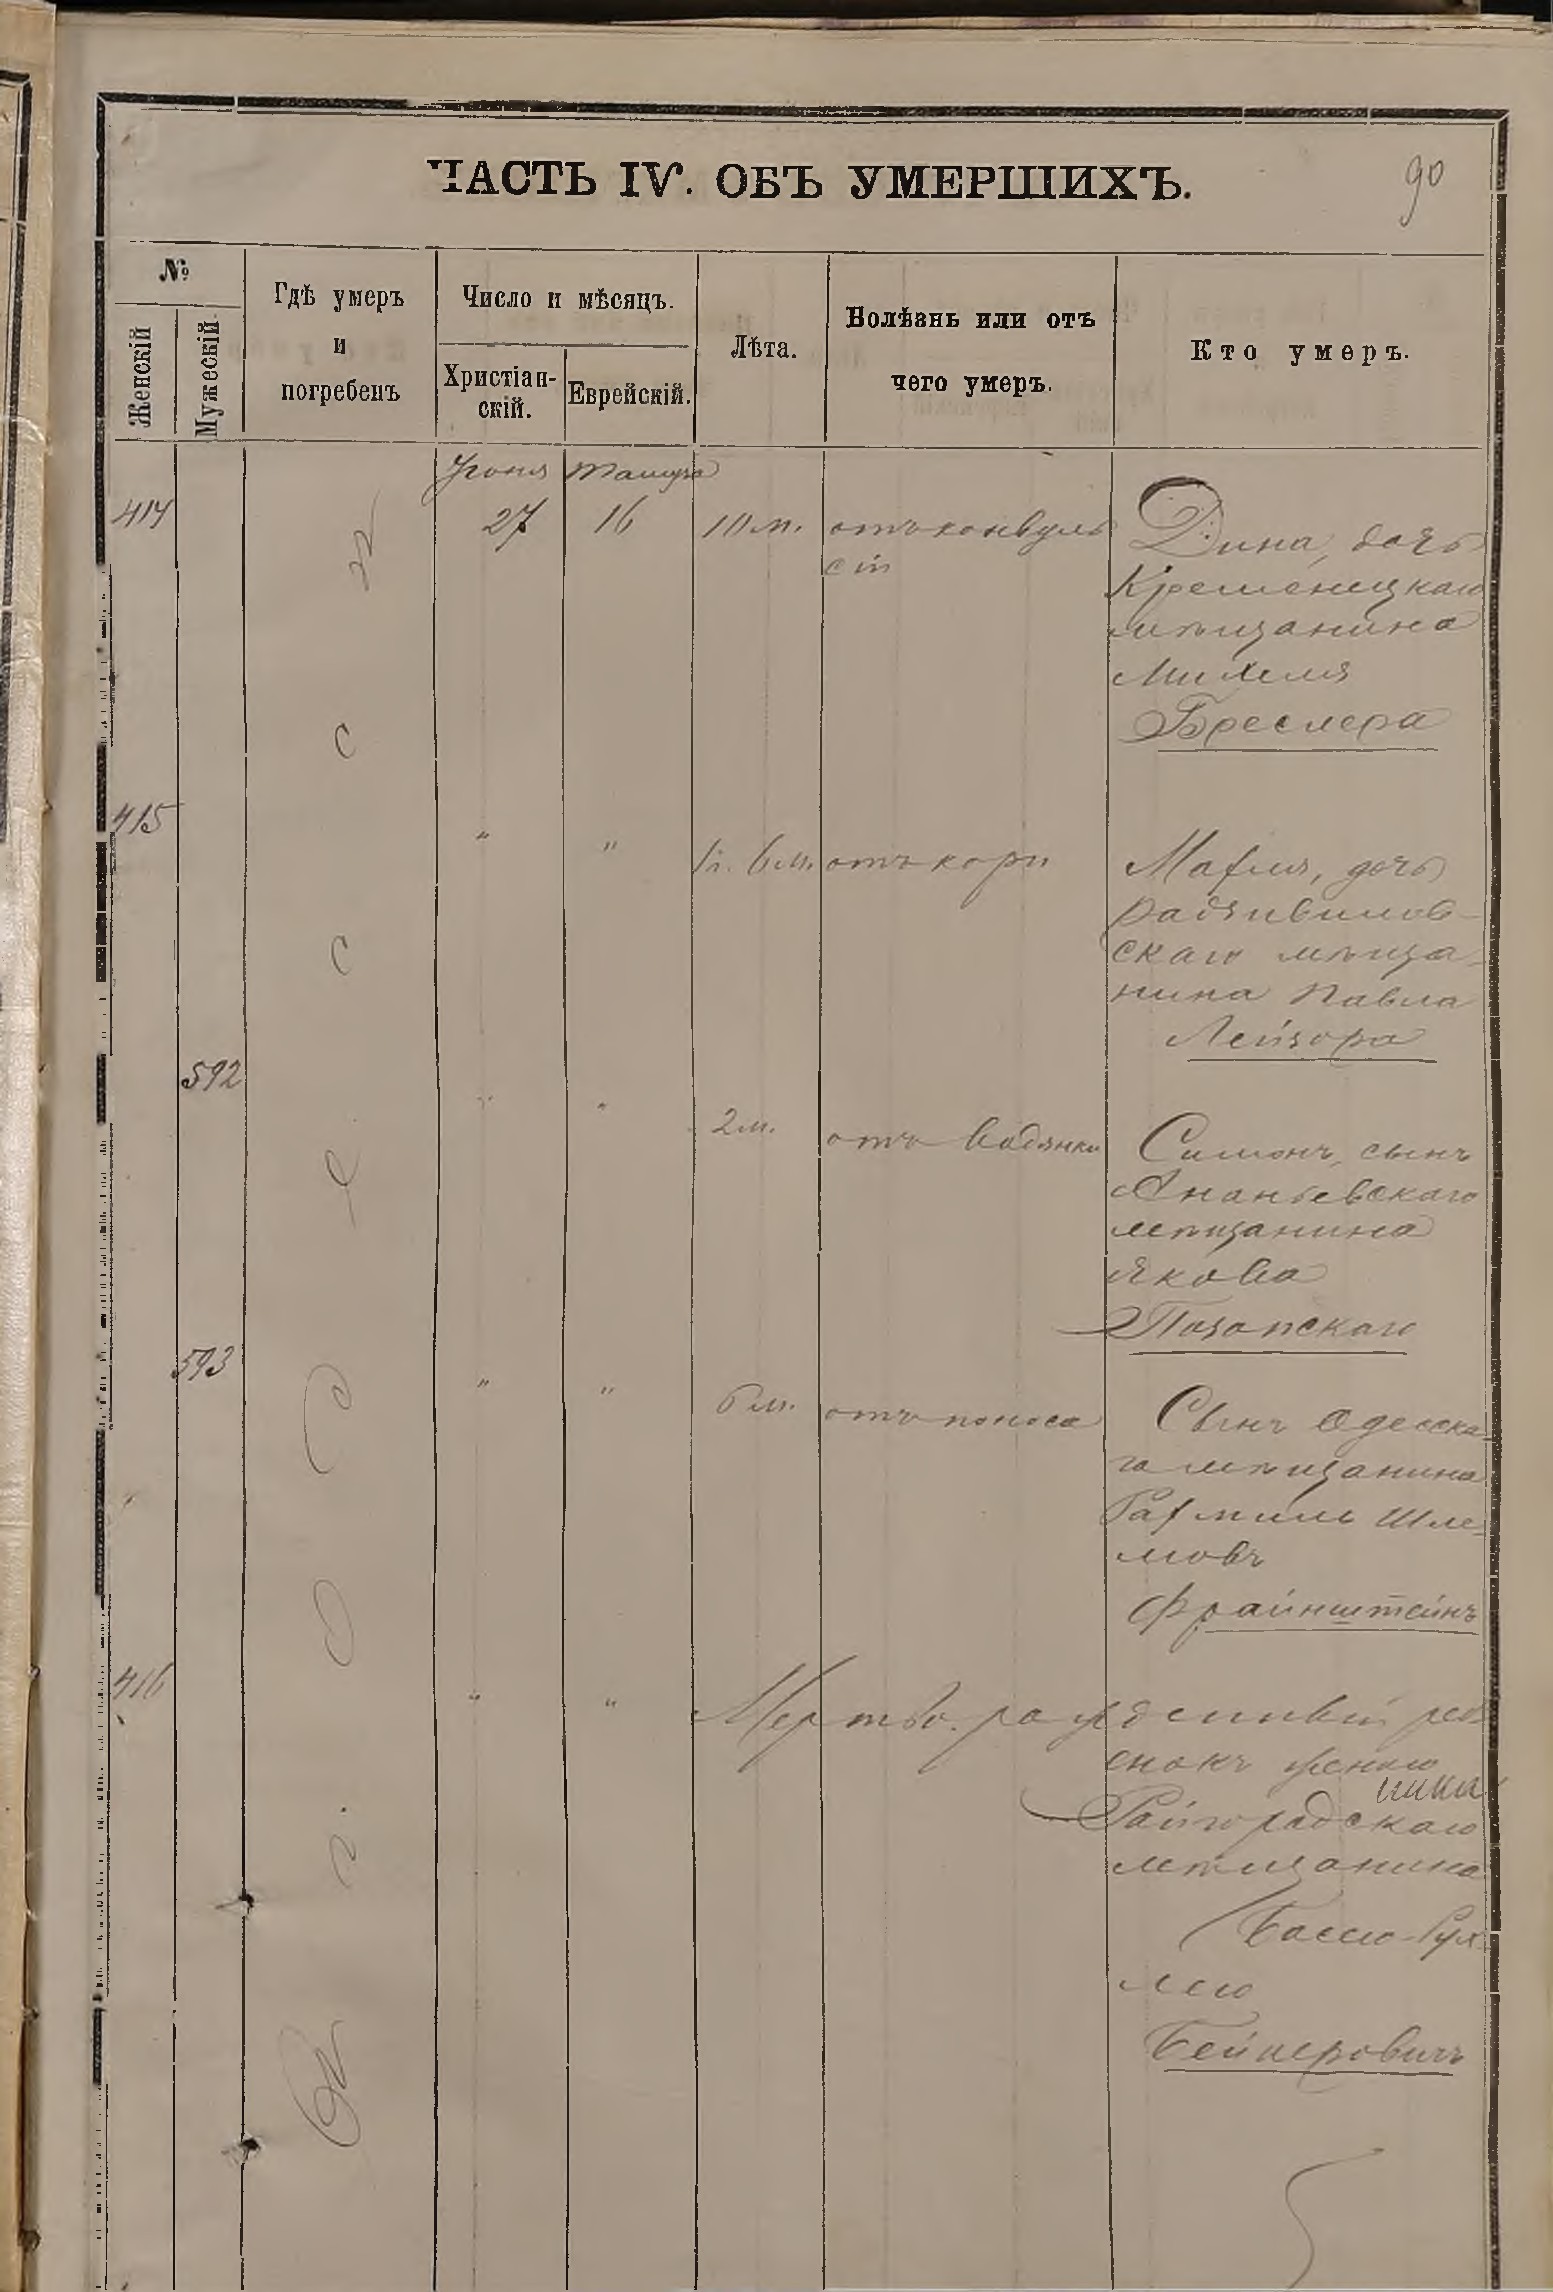 ЧАСТЬ IV. ОБЪ УМЕРШИХЪ.
90
№
Женскій
Мужескій
Гдѣ умеръ
и
погребенъ
Число и мѣсяцъ.
Христіан-
скій.
Еврейскій.
Лѣта.
Болѣзнь или отъ
чего умеръ.
Кто умеръ.
Въ г. Одессѣ
Іюня Тамуза
414 27 16 10 м. отъ конвуль
сій
Дина, дочь
Кременецкаго
мѣщанина
Михеля
Бреслера
415 " " 1 г. 6 м. отъ кори
Маля, дочь
Радзивилов-
скаго мѣща-
нина Павла
Лейзора
592 " " 2 м. отъ водянки
Симонъ, сынъ
Ананьевскаго
мѣщанина
Якова
593 " " 6 м. отъ поноса
Сынъ Одесска-
го мѣщанина
Шле-
мовъ
Файнштейнъ
416 " " Мертворожденный реб-
енокъ женою
Райгородскаго
мѣщанина
Бассю-Рух-
лею
Бейнеровичъ